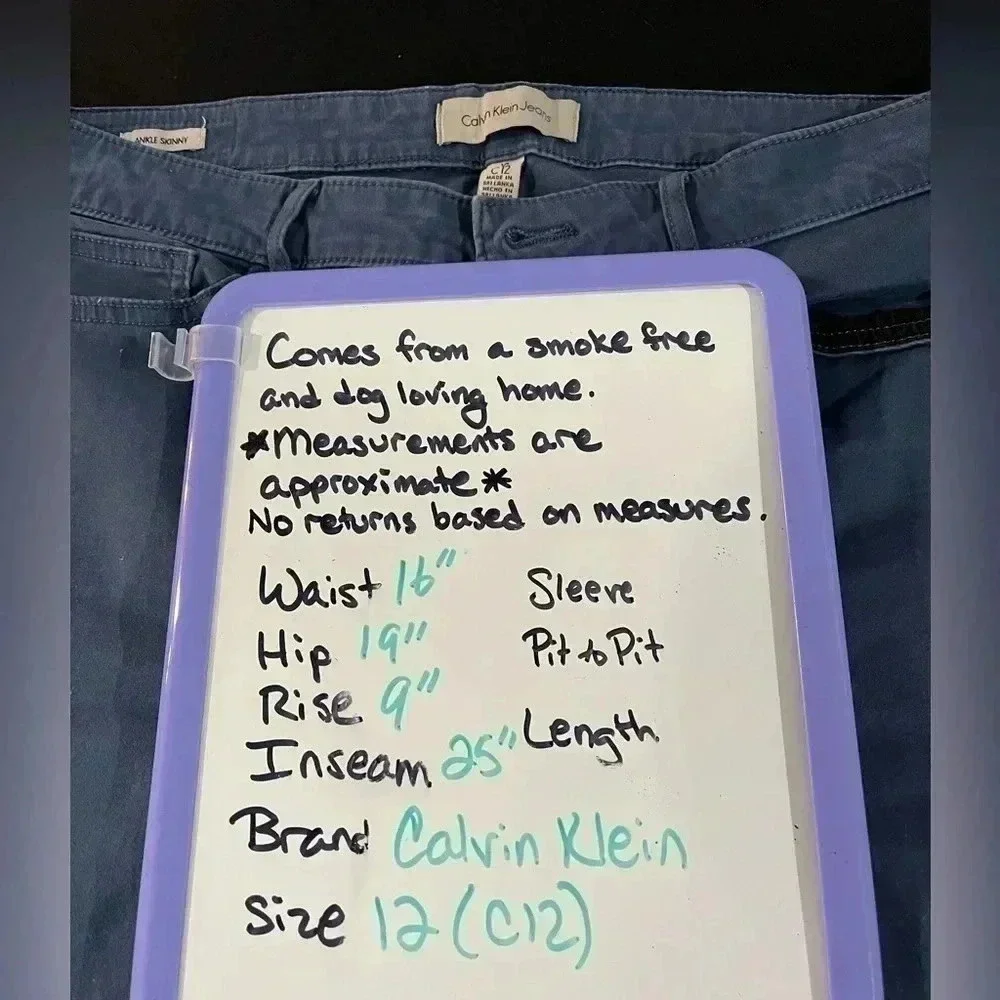 Calvin Klein Jeans
ANKLE SKINNY
C12
MADE IN
SRI LANKA
HECHO EN
SRI LANKA
Comes from a smoke free
and dog loving home.
*Measurements are
approximate*
No returns based on measures.
Waist 16" Sleeve
Hip 19" Pit to Pit
Rise 9"
Inseam 25" Length
Brand Calvin Klein
Size 12 (C12)